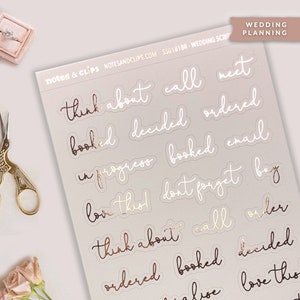 WEDDING
PLANNING
NOTES & CLIPS
NOTESANDCLIPS.COM
WEDDING SCRIPT
think about call meet
booked decided ordered
in progress booked email
love this! don't forget buy
think about call order
ordered booked decided
love this!